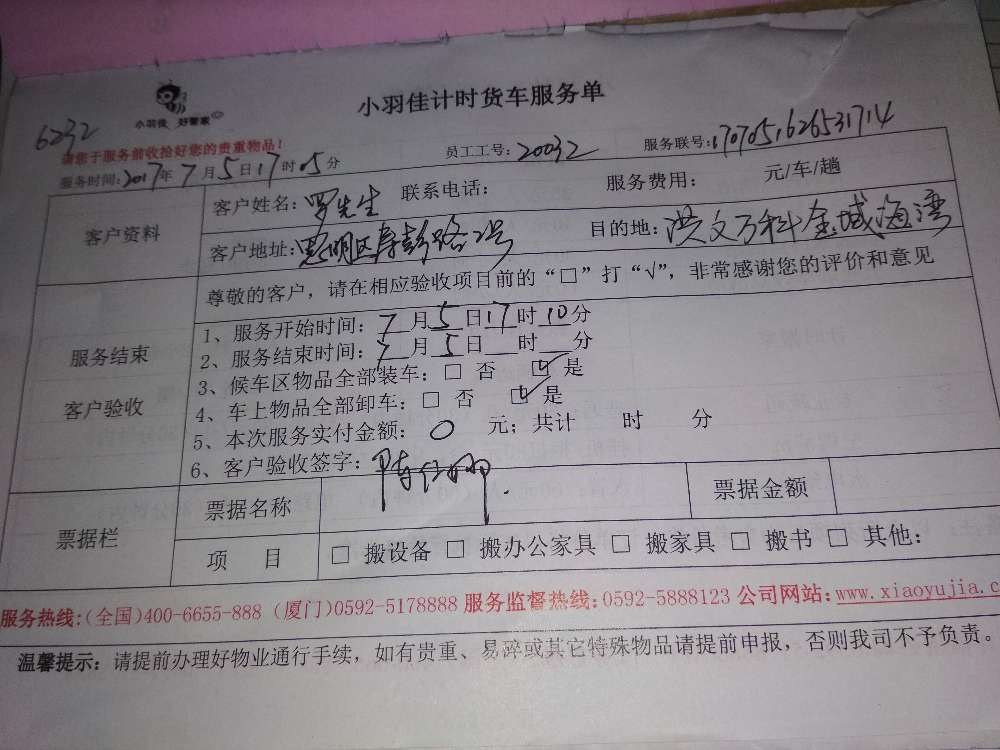 小羽佳计时货车服务单
小羽佳 好管家
6232
请您于服务前收拾好您的贵重物品!
服务时间:2017年7月5日17时05分 员工工号:20032 服务联号:1707051626531714
客户资料
客户姓名:罗先生 联系电话: 服务费用: 元/车/趟
客户地址:思明区厚彭路2号 目的地:洪文万科金域海湾
尊敬的客户，请在相应验收项目前的“□”打“√”，非常感谢您的评价和意见
服务结束
客户验收
1、服务开始时间:7月5日17时10分
2、服务结束时间:7月5日 时 分
3、候车区物品全部装车:□ 否 ☑ 是
4、车上物品全部卸车:□ 否 ☑ 是
5、本次服务实付金额: 0 元; 共计 时 分
6、客户验收签字:
票据栏
票据名称 票据金额
项 目 □ 搬设备 □ 搬办公家具 □ 搬家具 □ 搬书 □ 其他:
服务热线:(全国)400-6655-888 (厦门)0592-5178888 服务监督热线:0592-5888123 公司网站:www.xiaoyujia.c
温馨提示: 请提前办理好物业通行手续，如有贵重、易碎或其它特殊物品请提前申报，否则我司不予负责。